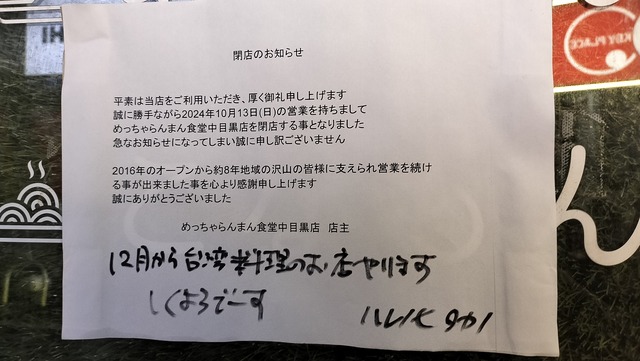 KEY PLACE
閉店のお知らせ
平素は当店をご利用いただき、厚く御礼申し上げます
誠に勝手ながら2024年10月13日(日)の営業を持ちまして
めっちゃらんまん食堂中目黒店を閉店する事となりました
急なお知らせになってしまい誠に申し訳ございません
2016年のオープンから約8年地域の沢山の皆様に支えられ営業を続け
る事が出来ました事を心より感謝申し上げます
誠にありがとうございました
めっちゃらんまん食堂中目黒店 店主
12月から台湾料理のお店やります
しくよろでーす